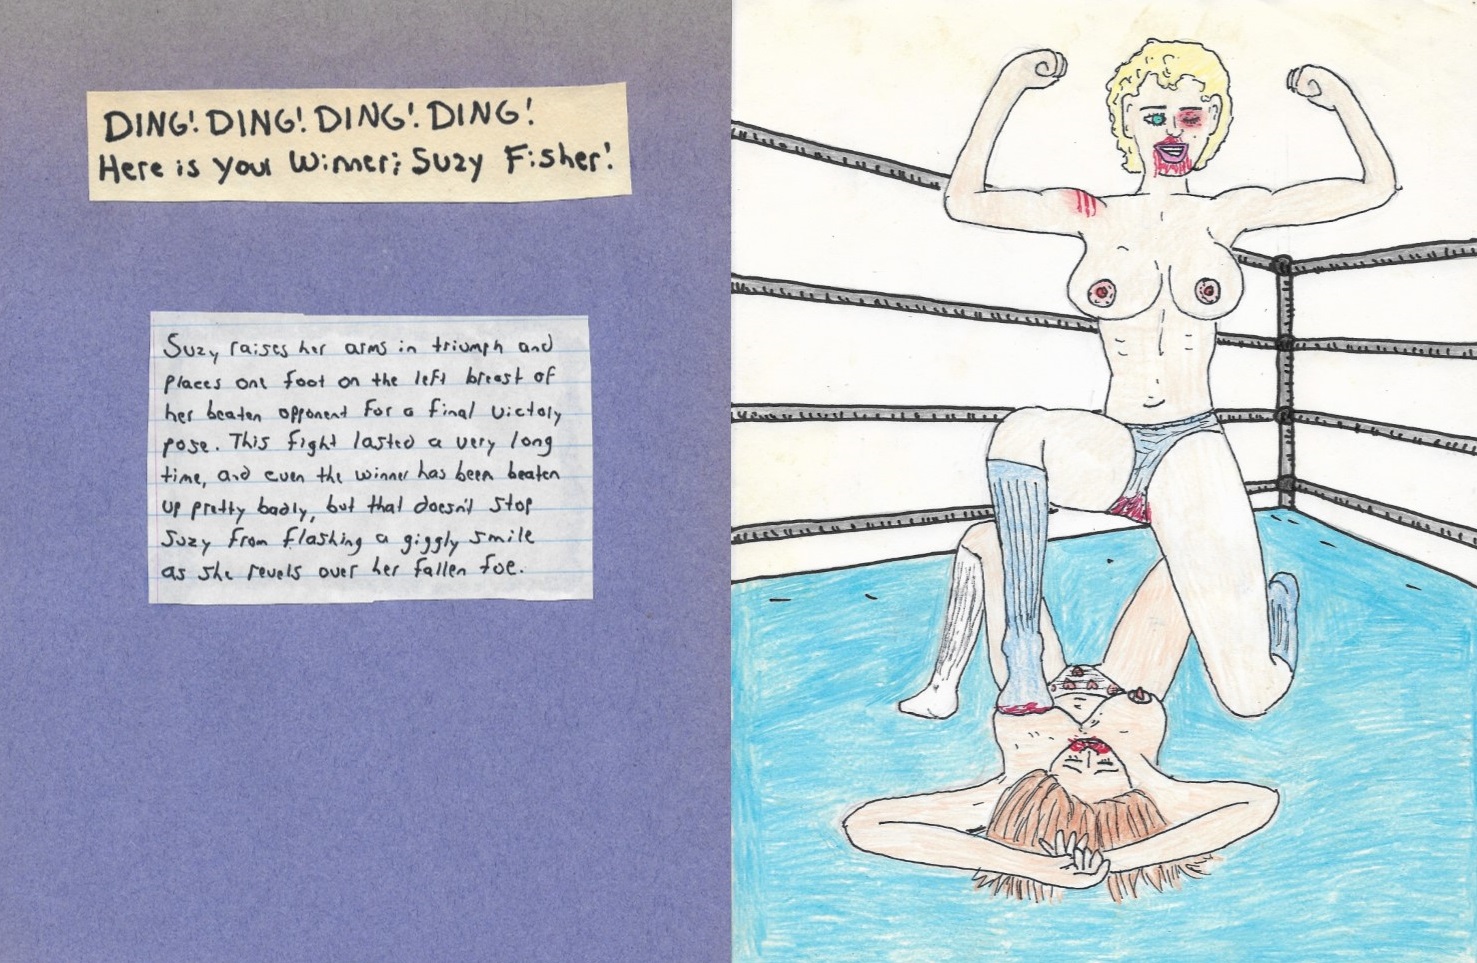 DING! DING! DING! DING!
Here is your Winner; Suzy Fisher!
Suzy raises her arms in triumph and
places one foot on the left breast of
her beaten opponent for a final victory
pose. This fight lasted a very long
time, and even the winner has been beaten
up pretty badly, but that doesn't stop
Suzy from flashing a giggly smile
as she revels over her fallen foe.